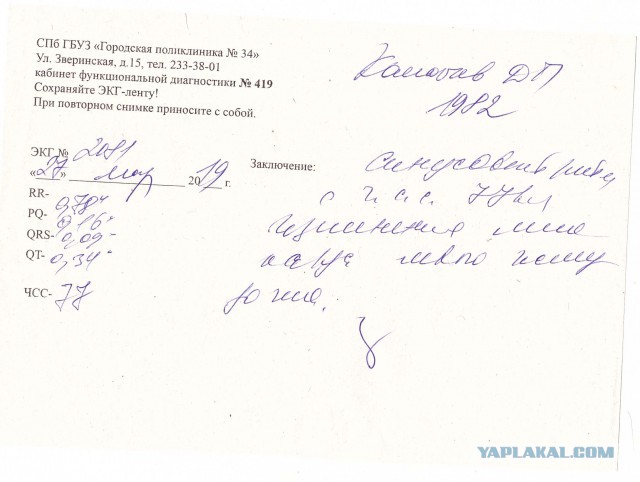 СПб ГБУЗ «Городская поликлиника № 34»
Ул. Зверинская, д.15, тел. 233-38-01
кабинет функциональной диагностики № 419
Сохраняйте ЭКГ-ленту!
При повторном снимке приносите с собой.
ДП
1982
ЭКГ № 2081
«27» мар 2019 г.
RR- 0,78"
PQ- 0,16"
QRS- 0,09"
QT- 0,34"
ЧСС- 77
Заключение: синусовый ритм
с ч.с.с. 77
изменения мио
карда левого желу
дочка.
YAPLAKAL.COM